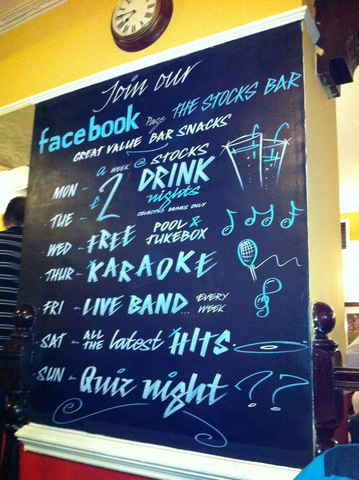 Join our
facebook Page THE STOCKS BAR
GREAT VALUE BAR SNACKS
a WEEK @ STOCKS
MON - £2 DRINK
TUE - nights
SELECTED DRINKS ONLY
WED - FREE POOL & JUKEBOX
THUR - KARAOKE
FRI - LIVE BAND... EVERY WEEK
SAT - ALL THE latest HITS
SUN - Quiz night ??